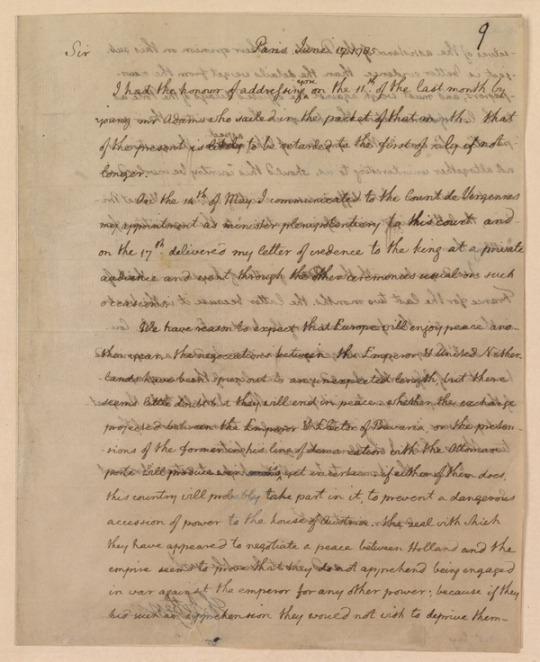 9
Sir Paris June 17. 1785
I had the honour of addressing you on the 11th. of the last month by
young mr Adams who sailed in the packet of that month. that
of the present is likely to be retarded to the first of July if not
longer.
On the 14th of May I communicated to the Count de Vergennes
my appointment as minister plenipotentiary to this court and
on the 17th delivered my letter of credence to the king at a private
audience and went through the other ceremonies usual on such
occasions.
We have reason to expect that Europe will enjoy peace ano-
ther year. the negociations between the Emperor & United Nether-
lands have been spun out to an unexpected length, but there
seems little doubt but they will end in peace. whether the exchange
projected between the Emperor & Elector of Bavaria, or the preten-
sions of the former in his line of demarcation with the Ottoman
porte will produce war is yet uncertain. if either of them does,
this country will probably take part in it, to prevent a dangerous
accession of power to the house of Austria. the zeal with which
they have appeared to negotiate a peace between Holland and the
empire seems to prove that they do not apprehend being engaged
in war against the emperor for any other power; because if they
had such an apprehension they would not wish to deprive them-